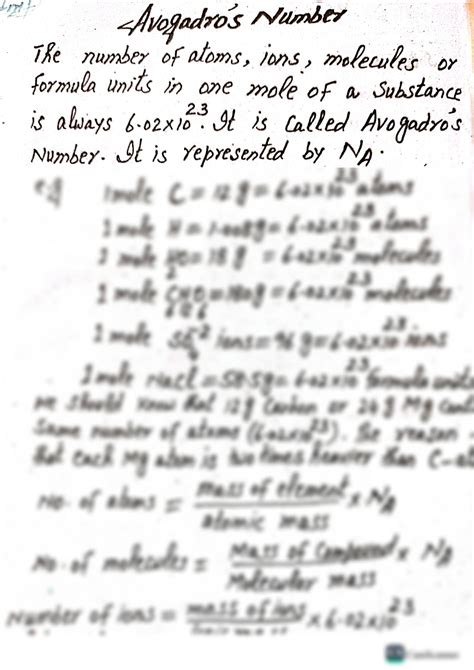 Avogadro's Number
The number of atoms, ions, molecules or
formula units in one mole of a Substance
is always 6.02x10²³. It is Called Avogadro's
Number. It is represented by NA.
1 mole C = 12 g = 6.02x10²³ atoms
1 mole H = 1.008g = 6.02x10²³ atoms
1 mole = 18 g = 6.02x10²³ molecules
1 mole = 180g = 6.02x10²³ molecules
1 mole ions = 96 g = 6.02x10²³ ions
1 mole NaCl = 58.5g = 6.02x10²³ formula units
we should know that 12g Carbon or 24g Mg
Same number of atoms (6.02x10²³). reason
that each Mg atom is two times heavier than C-
No. of atoms = mass of element x NA
atomic mass
No. of molecules = Mass of Compound x NA
Molecular mass
Number of ions = mass of ions x 6.02x10²³